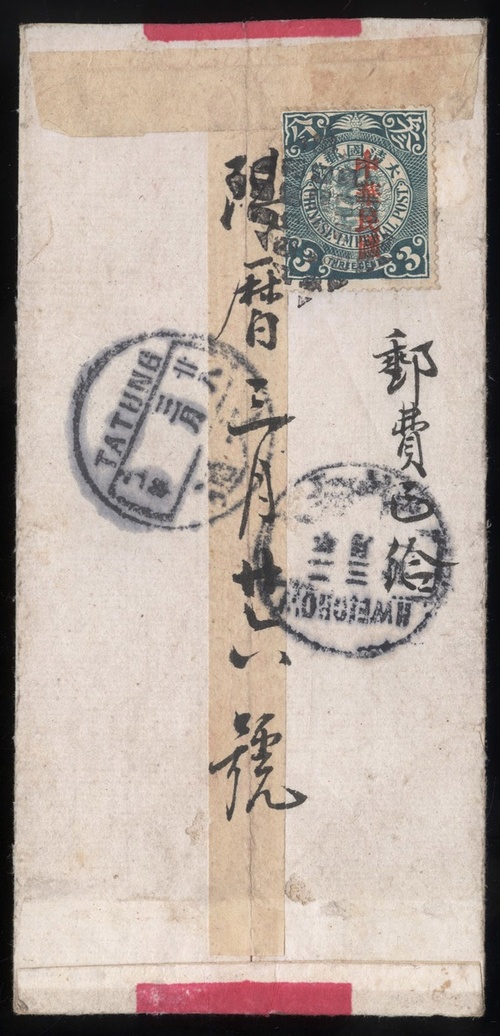 大清國郵政
中華民國
CHINESE IMPERIAL POST
3
3
郵費已給
陽曆三月廿六號
TATUNG
廿八
三月
通